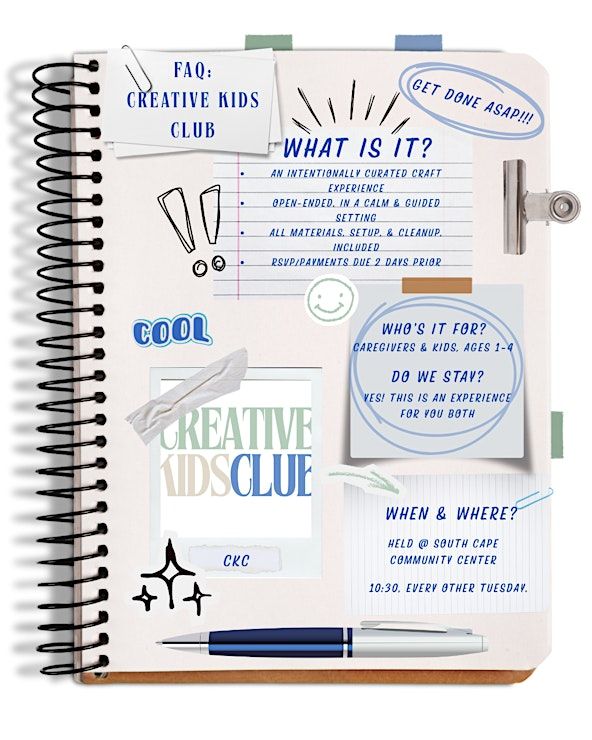 FAQ:
CREATIVE KIDS
CLUB
GET DONE ASAP!!!
WHAT IS IT?
• AN INTENTIONALLY CURATED CRAFT
EXPERIENCE
• OPEN-ENDED, IN A CALM & GUIDED
SETTING
• ALL MATERIALS, SETUP, & CLEANUP,
INCLUDED
• RSVP/PAYMENTS DUE 2 DAYS PRIOR
COOL
WHO'S IT FOR?
CAREGIVERS & KIDS, AGES 1-4
DO WE STAY?
YES! THIS IS AN EXPERIENCE
FOR YOU BOTH
CREATIVE
KIDSCLUB
CKC
WHEN & WHERE?
HELD @ SOUTH CAPE
COMMUNITY CENTER
10:30, EVERY OTHER TUESDAY.